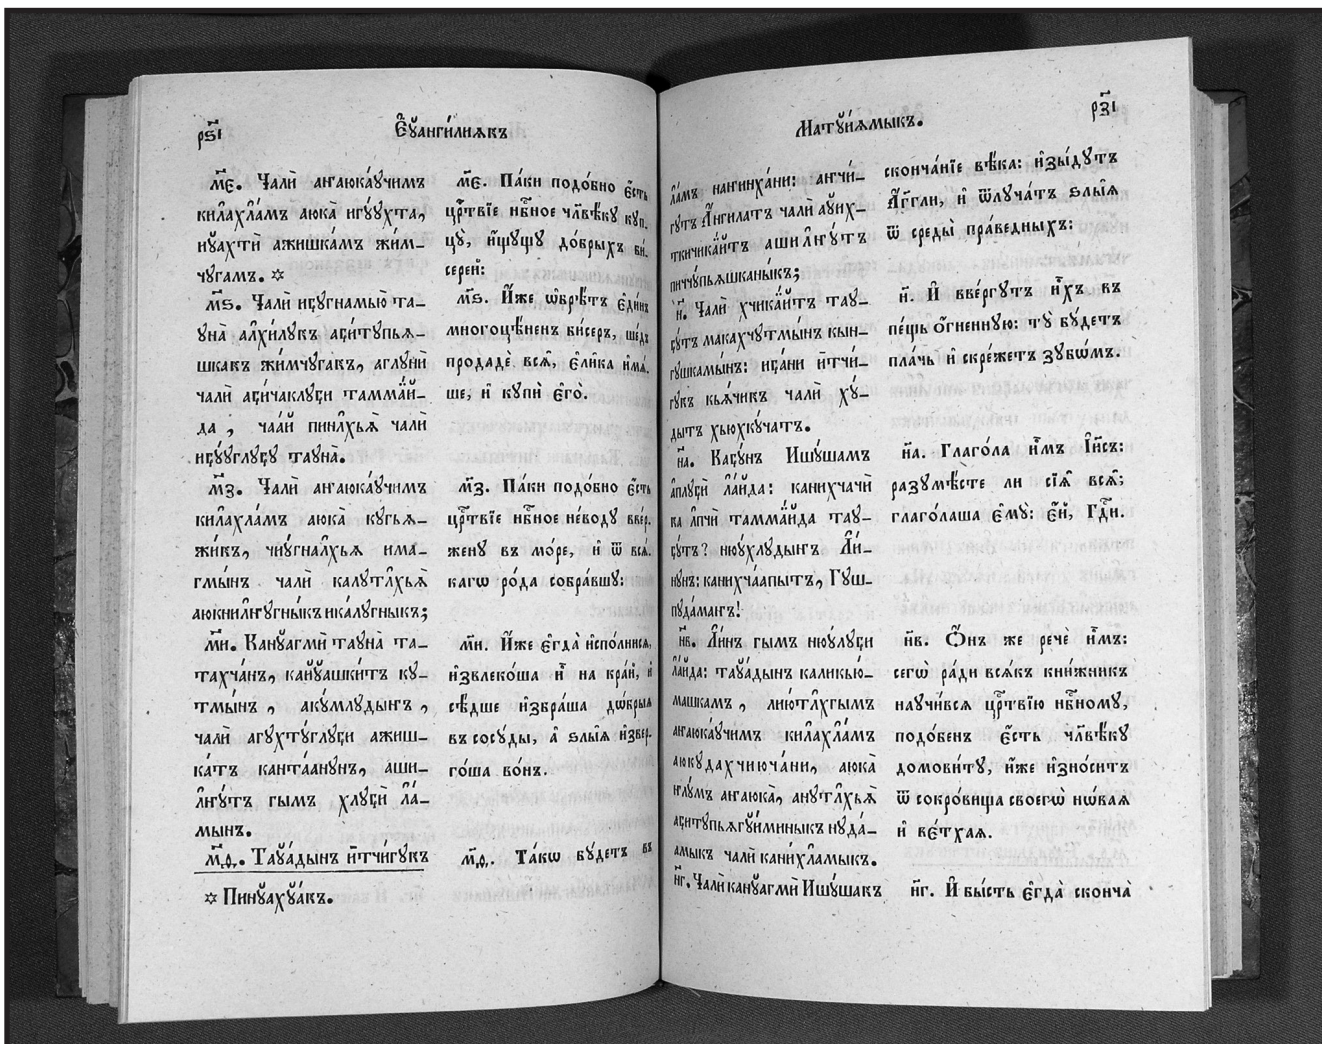 рѕ҃і
Єѵ҆ангі́лиѩкъ
м҃є. Чалѝ аԟаюка́ꙋчимъ
килахла́мъ аюка̀ игꙋꙋхта,
иꙋахтѝ ажишка́мъ жи́м-
чꙋгамъ. ✡
м҃ѕ. Чалѝ иԟꙋгнамыю̀ та-
ꙋна̀ алхи́лꙋкъ аԟитꙋпьѧ-
шкакъ жи́мчꙋгакъ, аглꙋнѝ
чалѝ аԟичаклꙋԟи тамма́й-
да, чаа́й пинлхьѧ̀ чали
иԟꙋꙋглꙋԟꙋ таꙋна̀.
м҃з. Чалѝ аԟаюка́ꙋчимъ
килахла́мъ аюка̀ кꙋгьѧ-
жи́къ, чиꙋгналхьѧ има-
гмы́нъ чали калꙋтлхьѧ̀
аюкнилԟꙋгныкъ икалꙋгныкъ;
м҃и. Канꙋагмѝ таꙋна̀ та-
тахча́нъ, кайꙋашки́тъ кꙋ-
тмы́нъ, акꙋмлꙋдыԟъ,
чалѝ агꙋхтꙋглꙋԟи ажиш-
ка́тъ кантла́нꙋнъ, аши-
лԟꙋтъ гымъ хлꙋԟи ла́-
мынъ.
м҃ѳ. Таꙋа́дынъ и҆тчи́гꙋкъ
✡ Пинꙋахꙋа́къ.
м҃є. Па́ки подо́бно є҆сть
црⷭ҇твїе нб҃ное чл҃вѣ́кꙋ кꙋп-
цꙋ̀, и҆́щꙋщꙋ до́брыхъ би́-
серей:
м҃ѕ. И҆́же ѡ҆брѣ́тъ є҆ди́нъ
многоцѣ́ненъ би́серъ, ше́дъ
продадѐ всѧ̑, є҆ли̑ка и҆мѧ́-
ше, и҆ кꙋпѝ є҆го̀.
м҃з. Па́ки подо́бно є҆сть
црⷭ҇твїе нб҃ное не́водꙋ вве́р-
женꙋ въ мо́ре, и҆ ѿ всѧ́-
кагѡ ро́да собра́вшꙋ:
м҃и. И҆́же є҆гда̀ и҆спо́лнисѧ,
и҆звлеко́ша и҆̀ на кра́й, и҆
сѣ́дше и҆збра́ша дѡ́брыѧ
въ сосꙋ́ды, а҆ ѕлы̑ѧ и҆звер-
го́ша вонъ.
м҃ѳ. Та́кѡ бꙋ́детъ въ
рз҃і
Матꙋ́иѧмыкъ.
ла́мъ наԟинха́ни: аԟчи́-
гꙋтъ А҆́нгилатъ чали аꙋих-
ткичика́йтъ ашилԟꙋтъ
пиччꙋпьѧшканы́къ;
н҃. Чалѝ хчика́йтъ таꙋ-
ԟꙋтъ макахчꙋтмы́нъ кын-
гꙋшкамы́нъ: иԟа́ни и҆тчи́-
гꙋкъ кьѧ́чикъ чалѝ хꙋ́-
дытъ хьюхкꙋ́чатъ.
н҃а. Каԟꙋ́нъ Ишꙋ́шамъ
а҆плꙋԟѝ ла́йда: канихчачѝ
ка лпчѝ тамма́йда таꙋ-
ԟꙋтъ? нюꙋ́хлꙋдыԟъ ли́-
нꙋнъ: канихчаапы́тъ, Гꙋш-
пꙋда́маԟъ!
н҃в. Ли́нъ гымъ нюꙋ́лꙋԟи
ла́йда: таꙋа́дынъ каликью́-
машкамъ, лию́тлхгымъ
аԟаюка́ꙋчимъ килахла́мъ
аюкꙋдахчиюча́ни, аюка̀
ԟлꙋмъ аԟаюка̀, анꙋтлхьѧ̀
аԟитꙋпьѧгꙋиминыкъ нꙋда́-
амыкъ чали кани́хламыкъ.
н҃г. Чали канꙋагмѝ Ишꙋ́шакъ
сконча́нїе вѣ́ка: и҆зы́дꙋтъ
А҆́гг҃ли, и҆ ѿлꙋча́тъ ѕлы̑ѧ
ѿ среды̀ пра́ведныхъ:
н҃. И҆ вве́ргꙋтъ и҆̀хъ въ
пе́щь ѻ҆́гненнꙋю: тꙋ̀ бꙋ́детъ
пла́чь и҆ скре́жетъ зꙋбѡ́мъ.
н҃а. Глаго́ла и҆̀мъ І҆и҃съ:
разꙋмѣ́сте ли сїѧ̑ всѧ̑;
глаго́лаша є҆мꙋ̀: є҆́й, Гдⷭ҇и.
н҃в. Ѻ҆́нъ же речѐ и҆̀мъ:
сегѡ̀ ра́ди всѧ́къ кни́жникъ
наꙋчи́всѧ црⷭ҇твїю нб҃номꙋ,
подо́бенъ є҆сть чл҃вѣ́кꙋ
домови́тꙋ, и҆́же и҆зно́ситъ
ѿ сокро́вища своегѡ̀ нѡ́ваѧ
и҆ вє́тхаѧ.
н҃г. И҆ бы́сть є҆гда̀ сконча̀